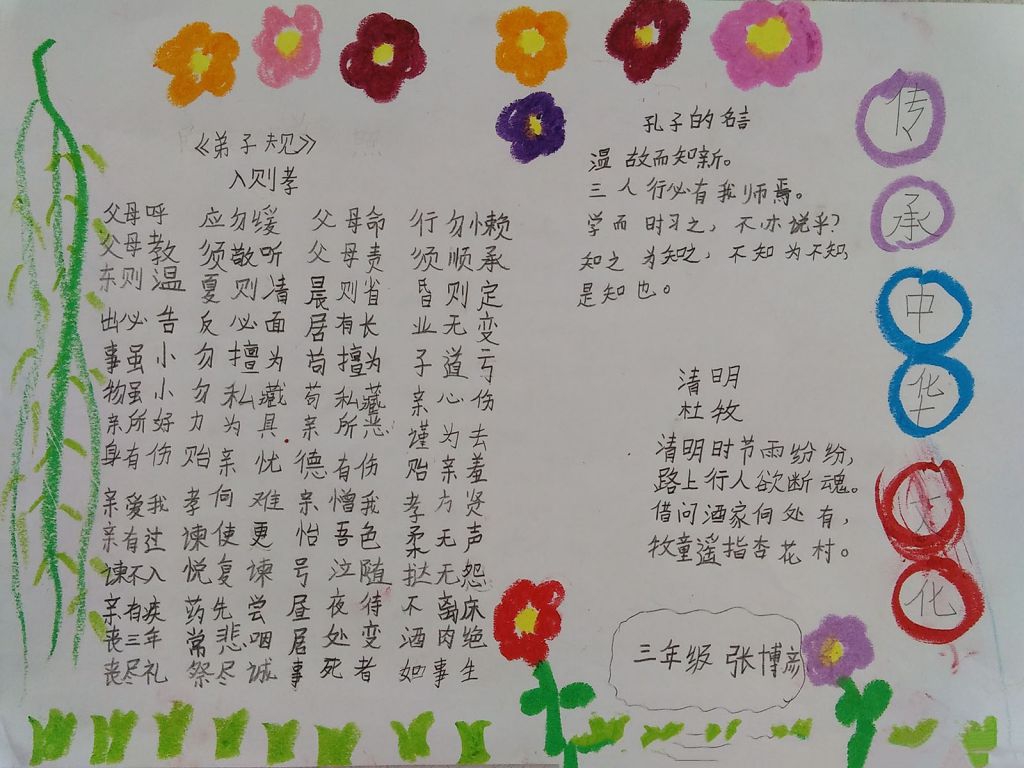 《弟子规》
入则孝
父母呼 应勿缓 父母命 行勿懒
父母教 须敬听 父母责 须顺承
东则温 夏则清 晨则省 昏则定
出必告 反必面 居有长 业无变
事虽小 勿擅为 苟擅为 子道亏
物虽小 勿私藏 苟私藏 亲心伤
亲所好 力为具 亲所恶 谨为去
身有伤 贻亲忧 德有伤 贻亲羞
亲爱我 孝何难 亲憎我 孝方贤
亲有过 谏使更 怡吾色 柔无声
谏不入 悦复谏 号泣随 挞无怨
亲有疾 药先尝 昼夜待 不离床
丧三年 常悲咽 居处变 酒肉绝
丧尽礼 祭尽诚 事死者 如事生
孔子的名言
温故而知新。
三人行必有我师焉。
学而时习之，不亦说乎？
知之为知之，不知为不知，
是知也。
清明
杜牧
清明时节雨纷纷，
路上行人欲断魂。
借问酒家何处有，
牧童遥指杏花村。
三年级 张博彦
传
承
中
华
文
化